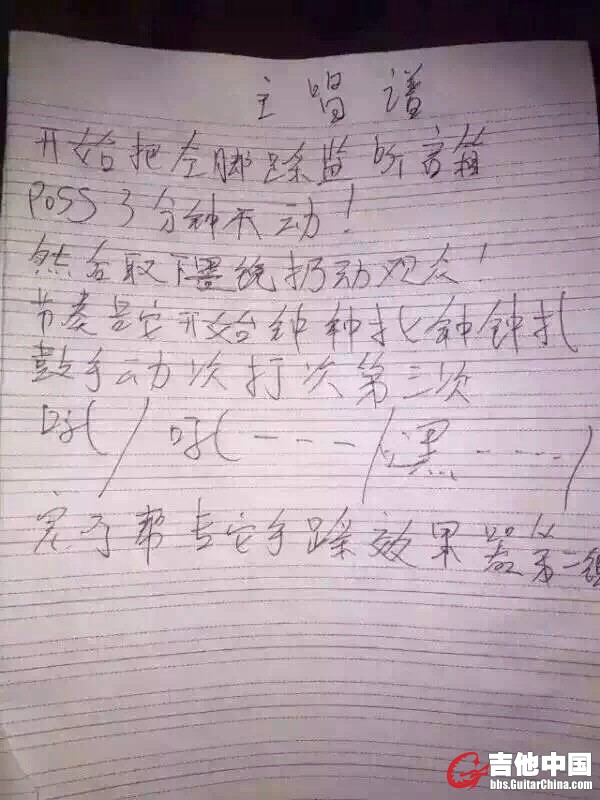 主唱谱
开始把左脚踩监听音箱
POSS 3分钟不动！
然后取下墨镜扔动观众！
节奏是它开始钟钟扎钟钟扎
鼓手动次打次第三次
吼/吼----/嘿----/
完了帮吉它手踩效果器第二锁
吉他中国
bbs.GuitarChina.com